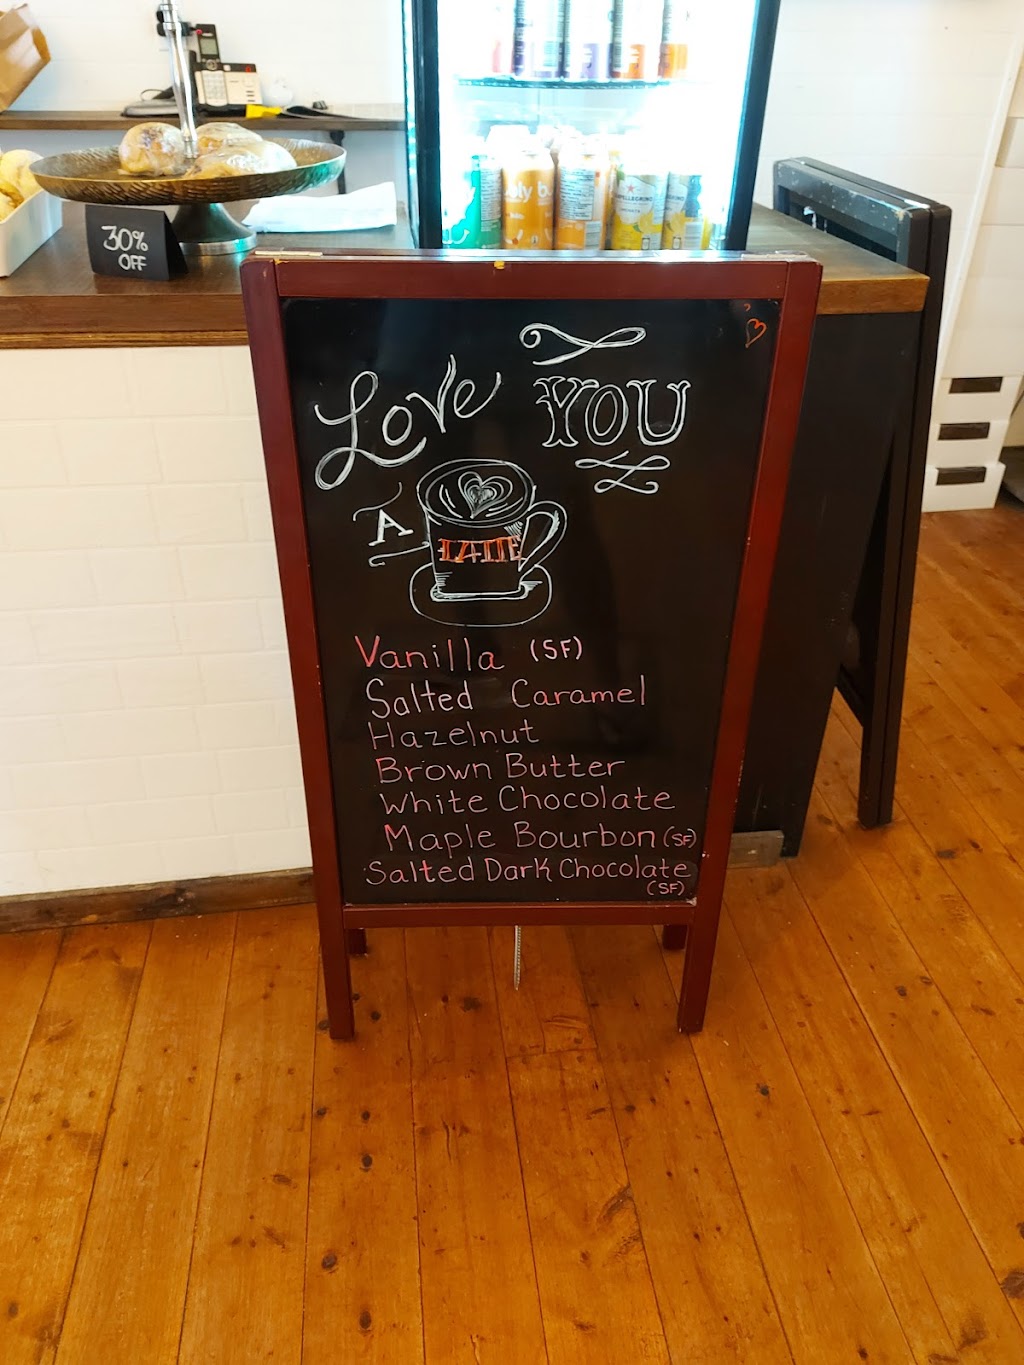 30%
OFF
bly b
PELLEGRINO
Love YOU
A LATTE
Vanilla (SF)
Salted Caramel
Hazelnut
Brown Butter
White Chocolate
Maple Bourbon (SF)
Salted Dark Chocolate
(SF)